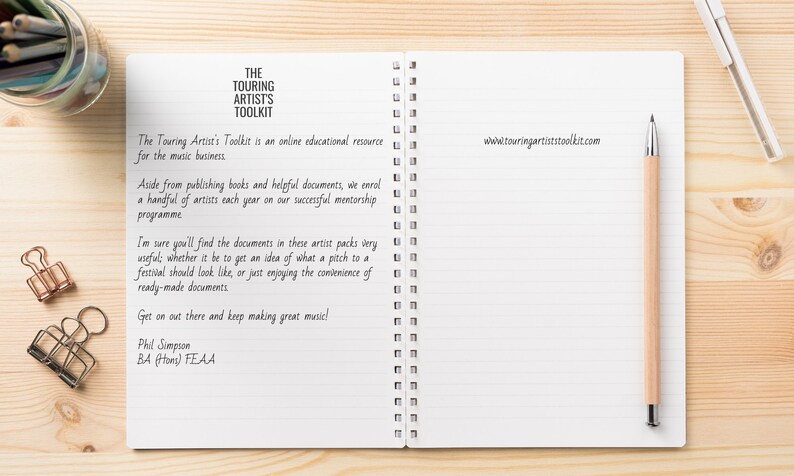 THE
TOURING
ARTIST'S
TOOLKIT
The Touring Artist's Toolkit is an online educational resource
for the music business.
Aside from publishing books and helpful documents, we enrol
a handful of artists each year on our successful mentorship
programme.
I'm sure you'll find the documents in these artist packs very
useful; whether it be to get an idea of what a pitch to a
festival should look like, or just enjoying the convenience of
ready-made documents.
Get on out there and keep making great music!
Phil Simpson
BA (Hons) FEAA
www.touringartiststoolkit.com